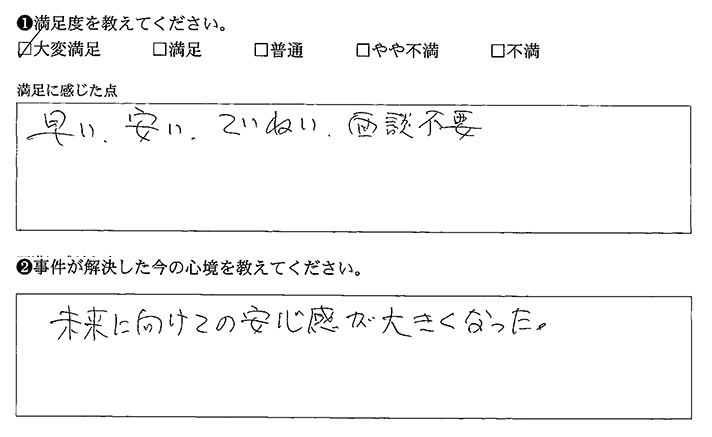 ❶満足度を教えてください。
☑大変満足 □満足 □普通 □やや不満 □不満
満足に感じた点
早い、安い、ていねい、面談不要
❷事件が解決した今の心境を教えてください。
未来に向けての安心感が大きくなった。